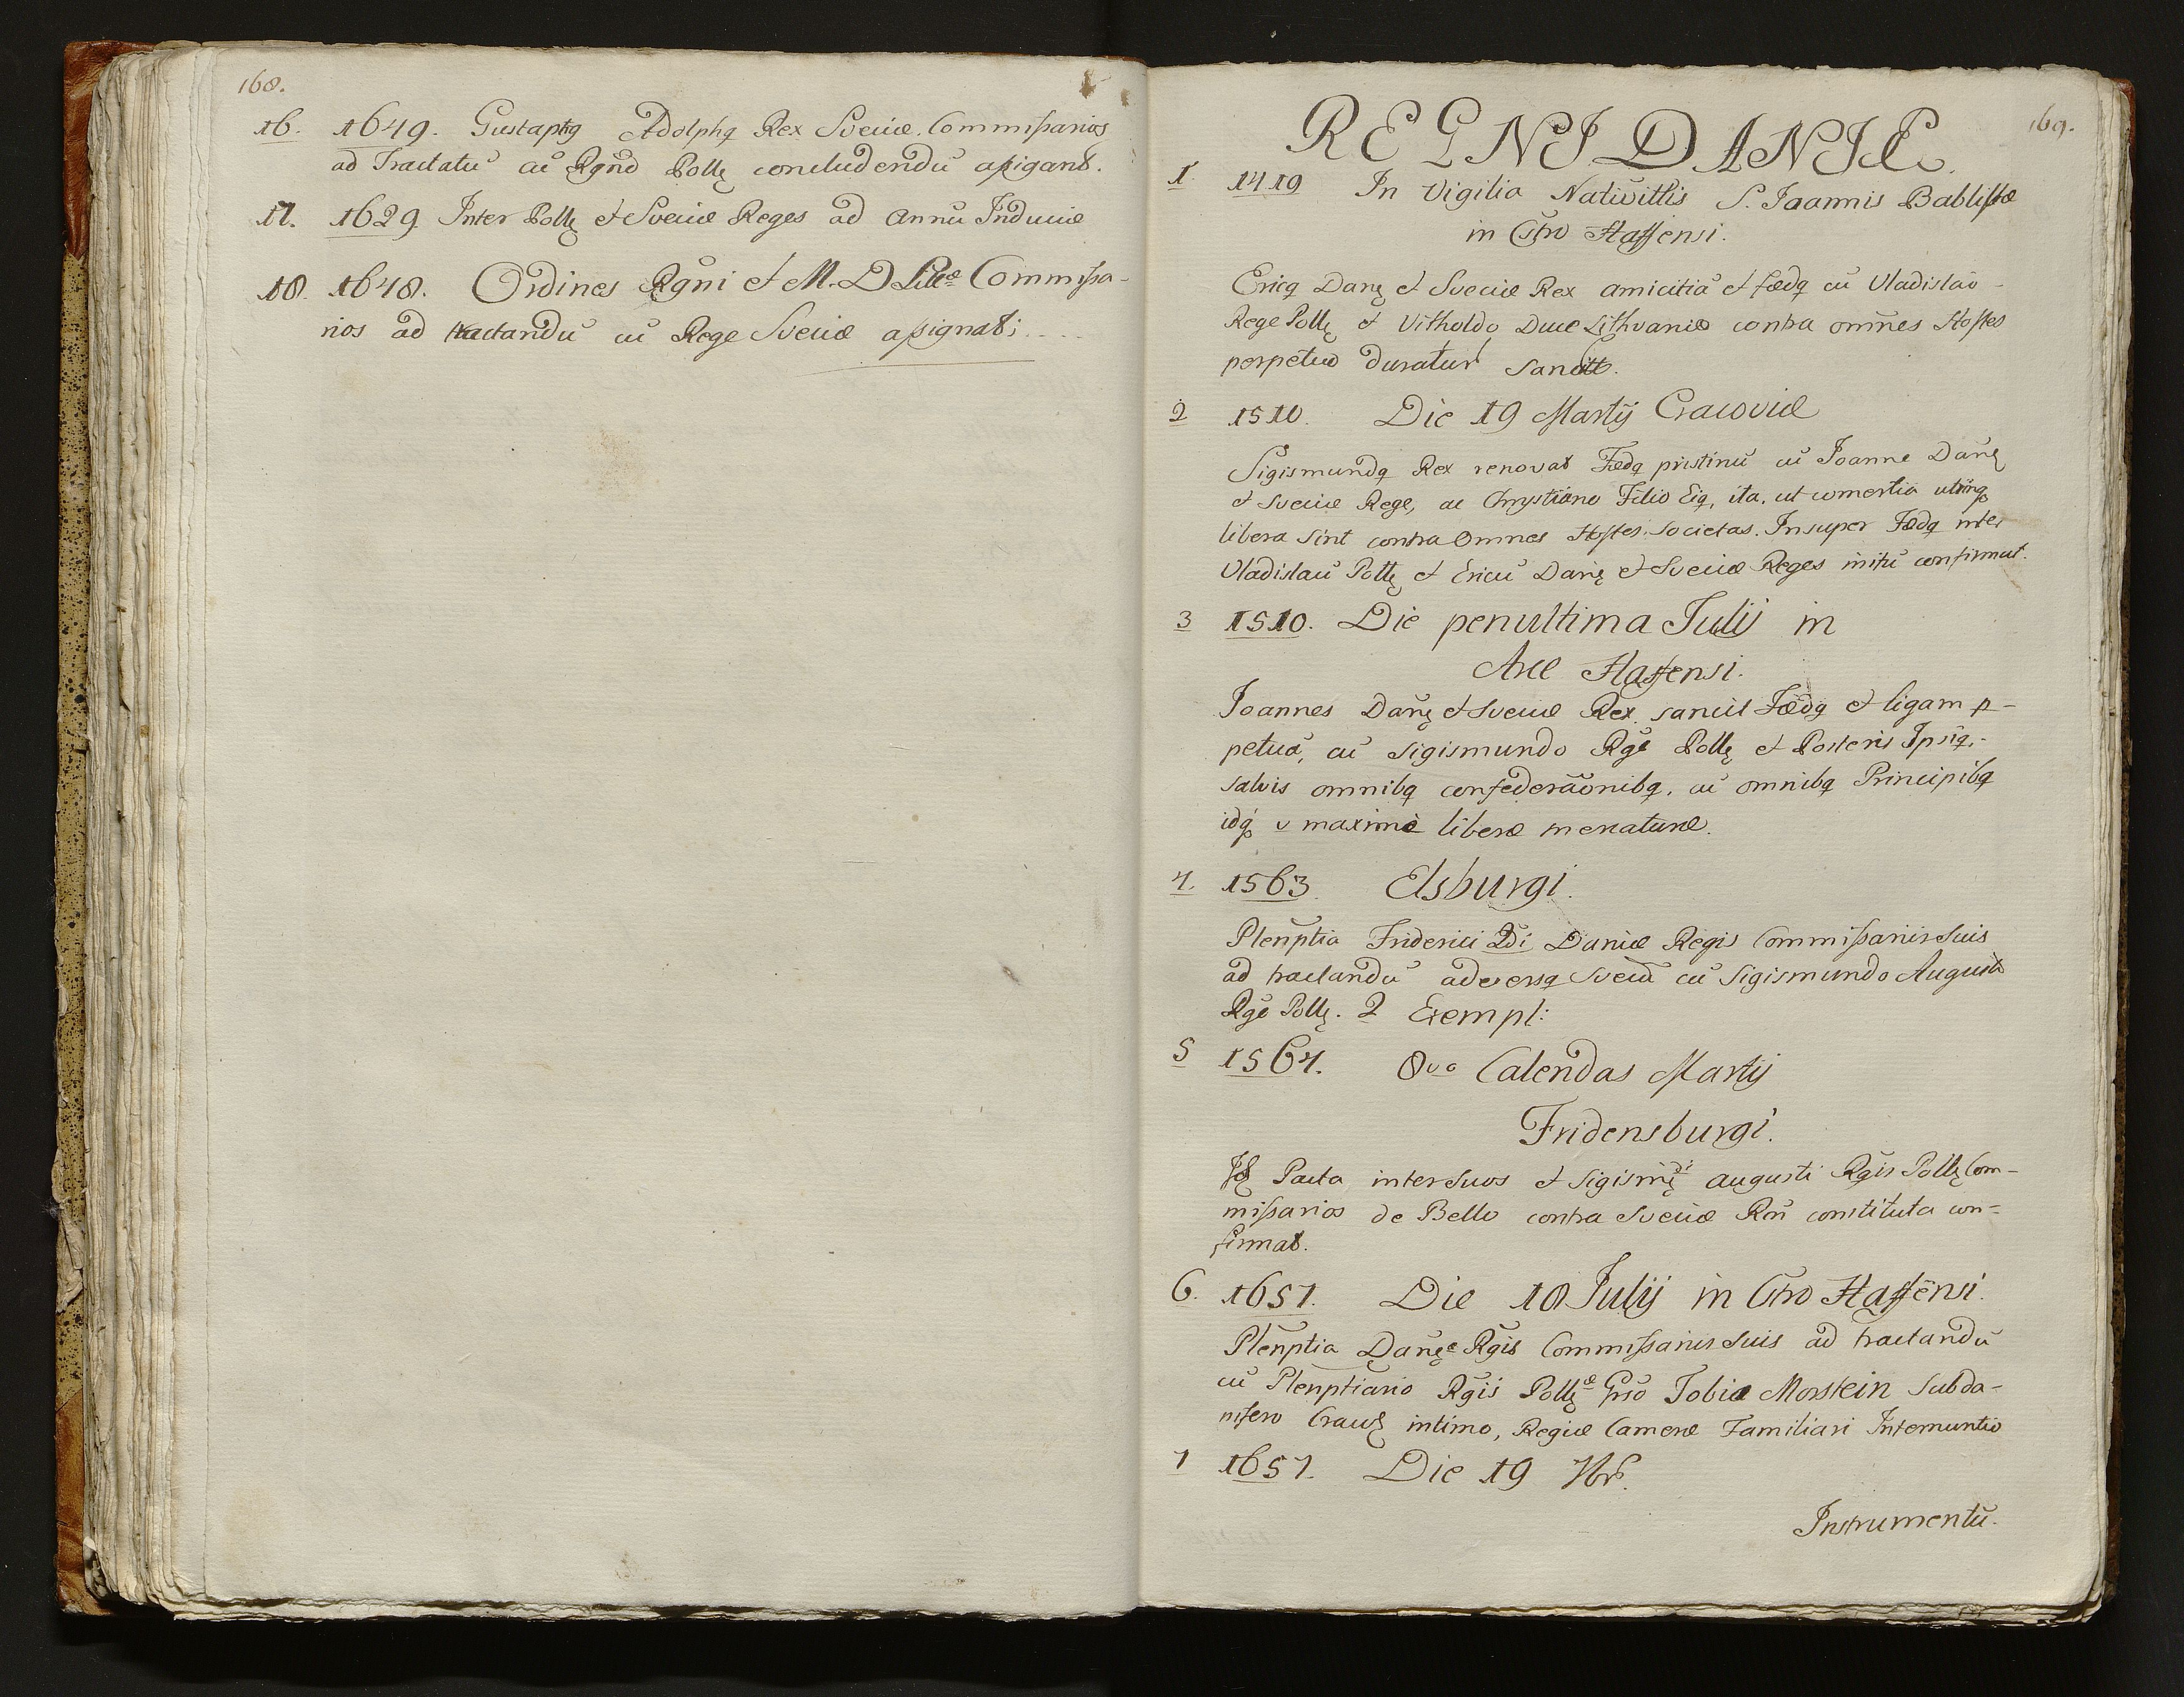 168.
16. 1649. Gustaphq Adolphq Rex Sveciæ Commissarios
ad Tractatū cū Rgno Pollę concludendū assigant.
17. 1629. Inter Pollę et Sveciæ Reges ad annū Induciæ
18. 1648. Ordines Rgni et M. D. Commissa-
rios ad tractandū cū Rege Sveciæ assignat: ....
169.
REGNI DANIÆ.
1. 1419 In Vigilia Nativittis S. Joannis Babtistæ
in Cstro Haffensi.
Ericq Danę et Sveciæ Rex amicitiā et fædq cū Vladislao
Rege Pollę et Vitholdo Duce Lithvaniæ contra omnes Hostes
perpetuo duratur
2 1510. Die 19 Martij Cracoviæ
Sigismundq Rex renovat Fædq pristinū cū Joanne Danę
et Sveciæ Rege, ac Chrystiano Filio Eiq, ita, ut comertia utrinq
libera sint contra omnes Hostes Societas. Insuper Fædq inter
Vladislaū Pollę et Ericū Danę et Sveciæ Reges initū confirmat.
3 1510. Die penultima Julij in
Arce Haffensi.
Joannes Danę et Sveciæ Rex sancit Fædq et ligam p-
petuā, cū Sigismundo Rge Pollę et Posteris Ipsiq,
salvis omnibq confederāonibq, cū omnibq Principibq
idq maxime liberæ mercaturæ.
4. 1563 Elsburgi.
Plenptia Friderici 2di Daniæ Regis Commissariis Suis
ad tractandū adversq Sveciā cū Sigismundo Augusto
Rge Pollę. 2 Exempl:
5 1564. 8va Calendas Martij
Fridensburgi.
Pacta inter Suos et Sigismdi augusti Rgis Pollę Com-
missarios de Bello contra Sveciæ constituta con-
firmat.
6. 1657. Die 18 Julij in Cstro Haffensi.
Plenptia Danę Rgis Commissariis Suis ad tractandū
cū Plenptiario Rgis Pollę Gnso Tobia Morstein Subda-
pifero intimo, Regiæ Cameræ Familiari Internuntio
7 1657. Die 19
Instrumentū.